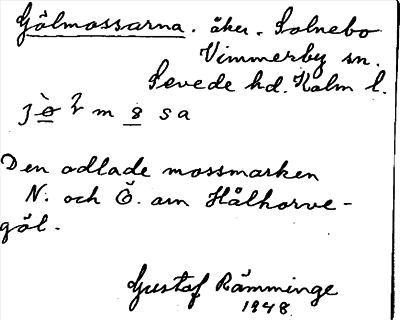 Gölmossarna. åker. Solnebo
Vimmerby sn.
Sevede hd. Kalm l.
Den odlade mossmarken
N. och Ö. om Hålkorve-
göl.
Gustaf Rämminge
1948